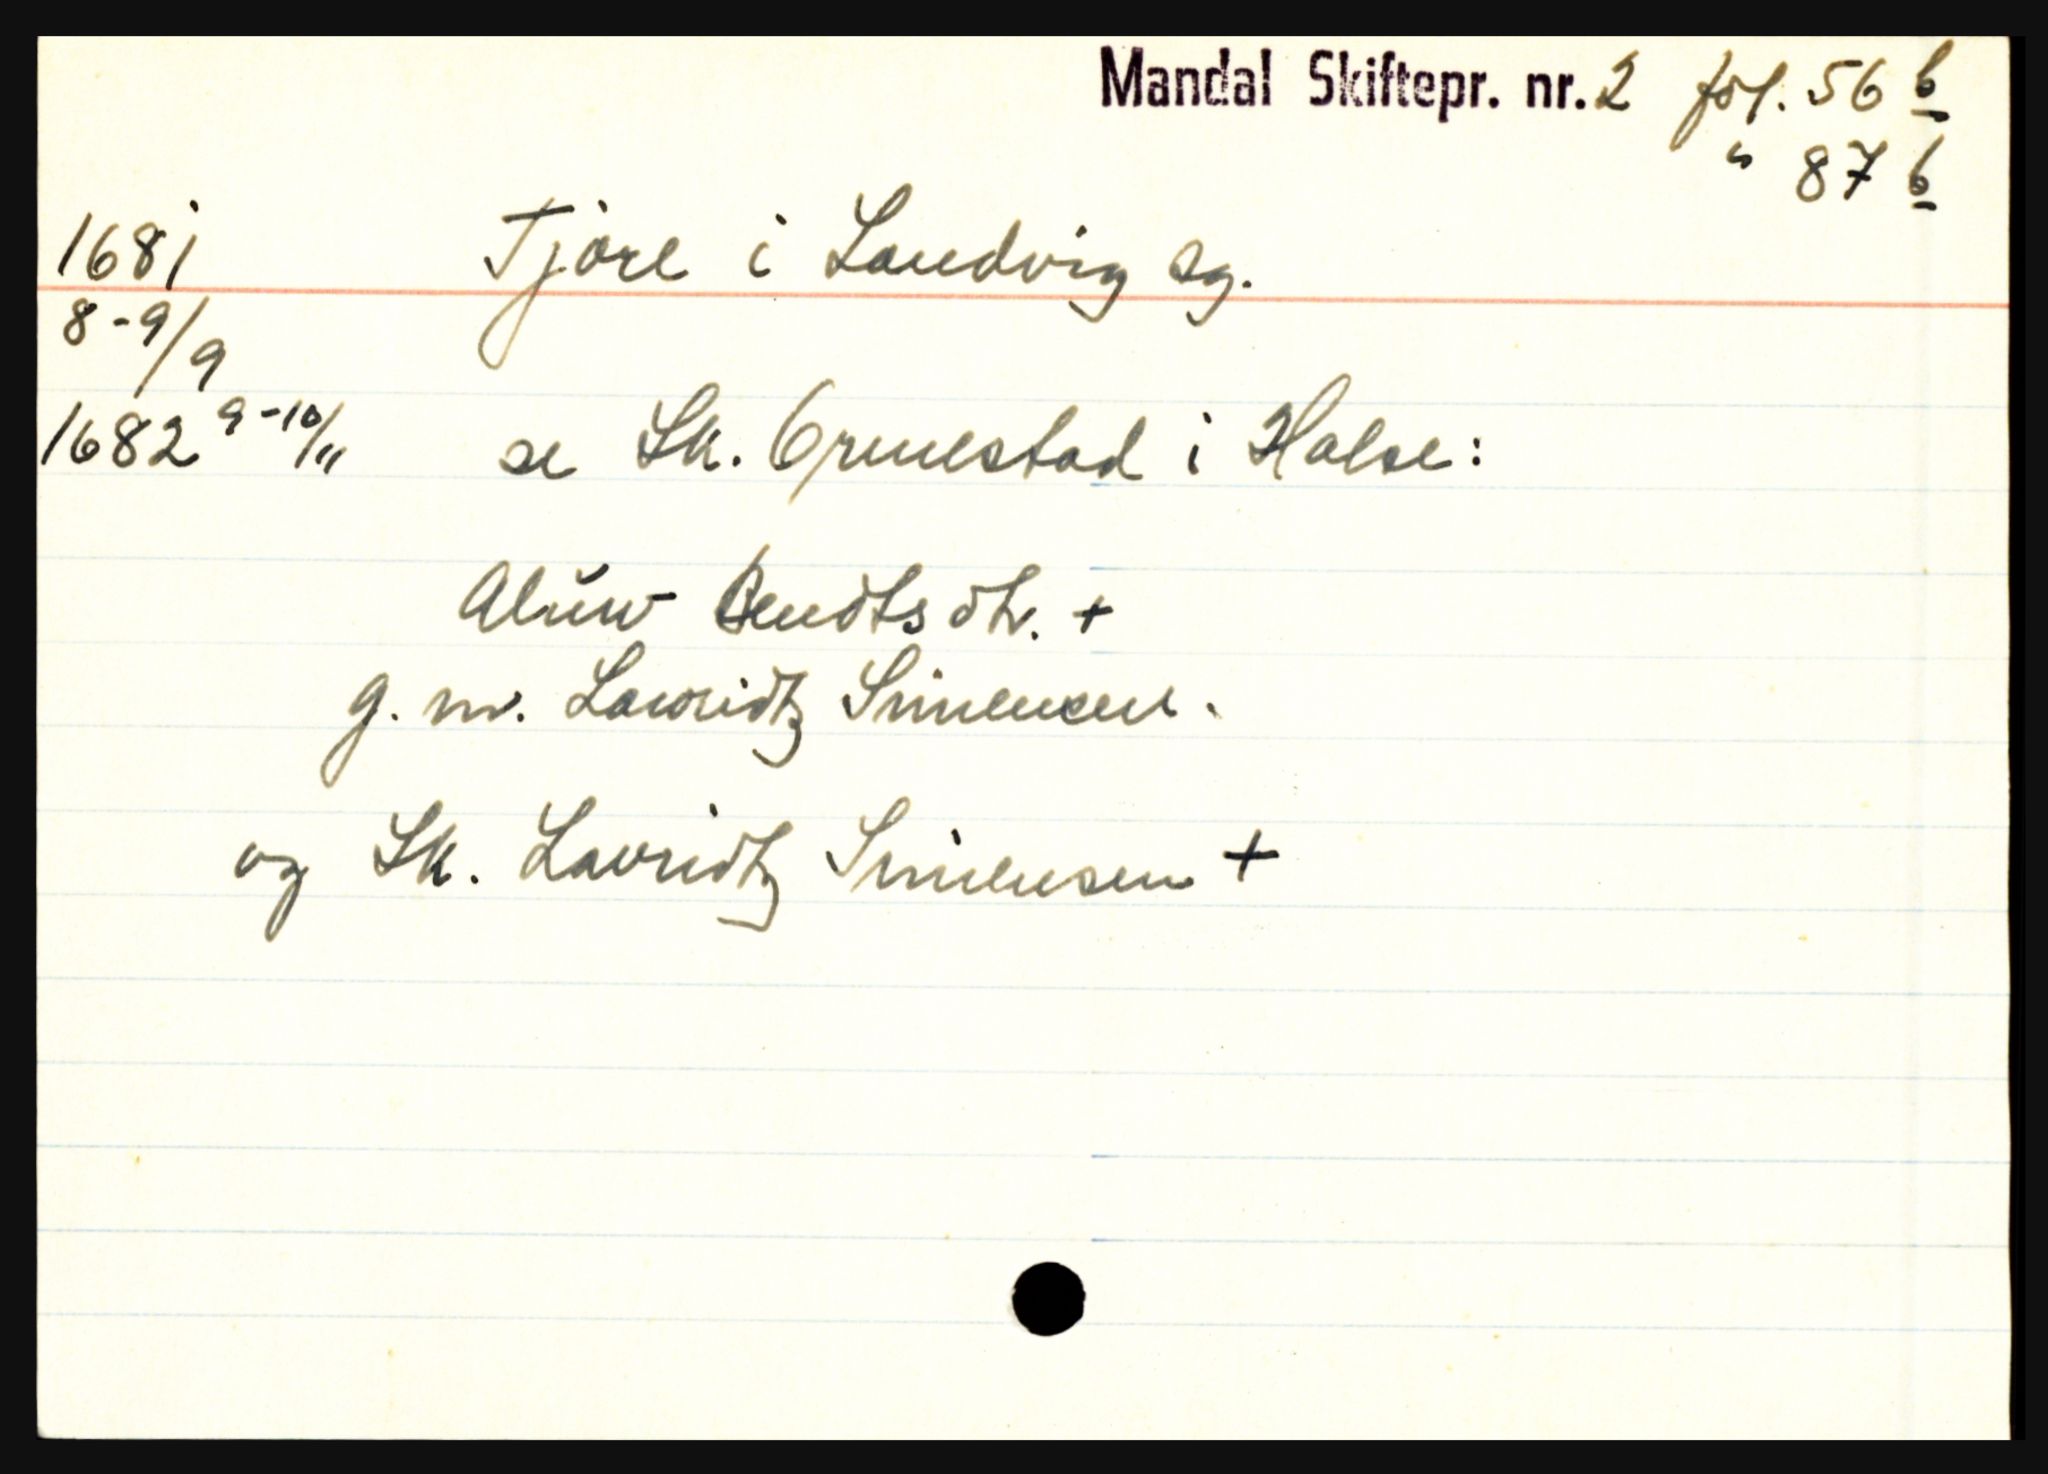 Mandal Skiftepr. nr. 2 fol. 56 b
" 87 b
1681 Tjöre i Landvig sg.
8-9/9
1682 9-10/11 se Sk. Ormestad i Halse:
Aluw Bendts dtr. +
g. m. Lauridtz Simensen.
og Sk. Lauridtz Simensen +